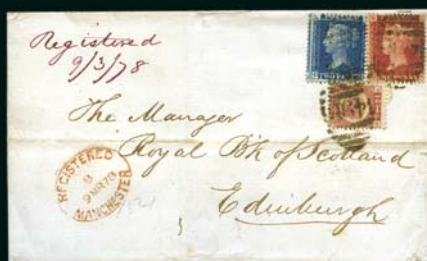 Registered
9/3/78
The Manager
Royal B'k of Scotland
Edinburgh
REGISTERED
9 MR 78
MANCHESTER